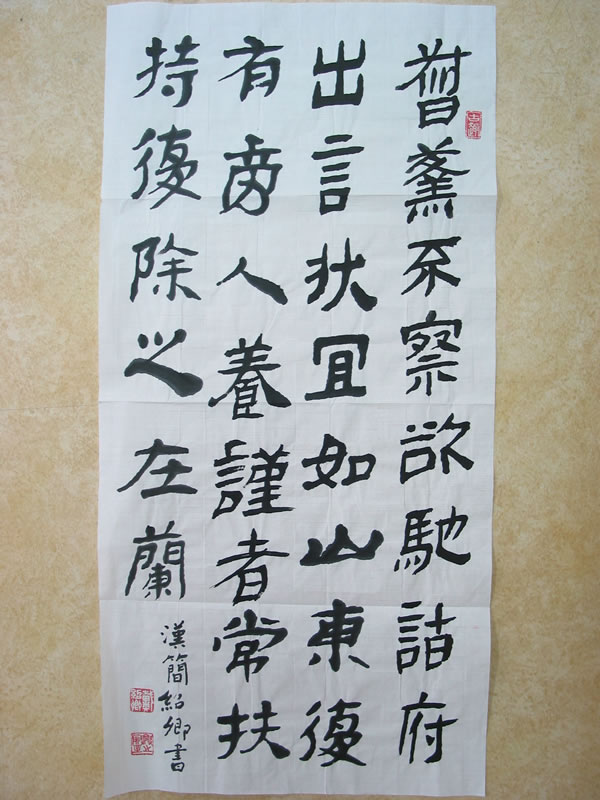 薰不察欲馳詣府
出言狀宜如山東復
有商人養謹者常扶
持復除之在蘭
漢簡紹卿書